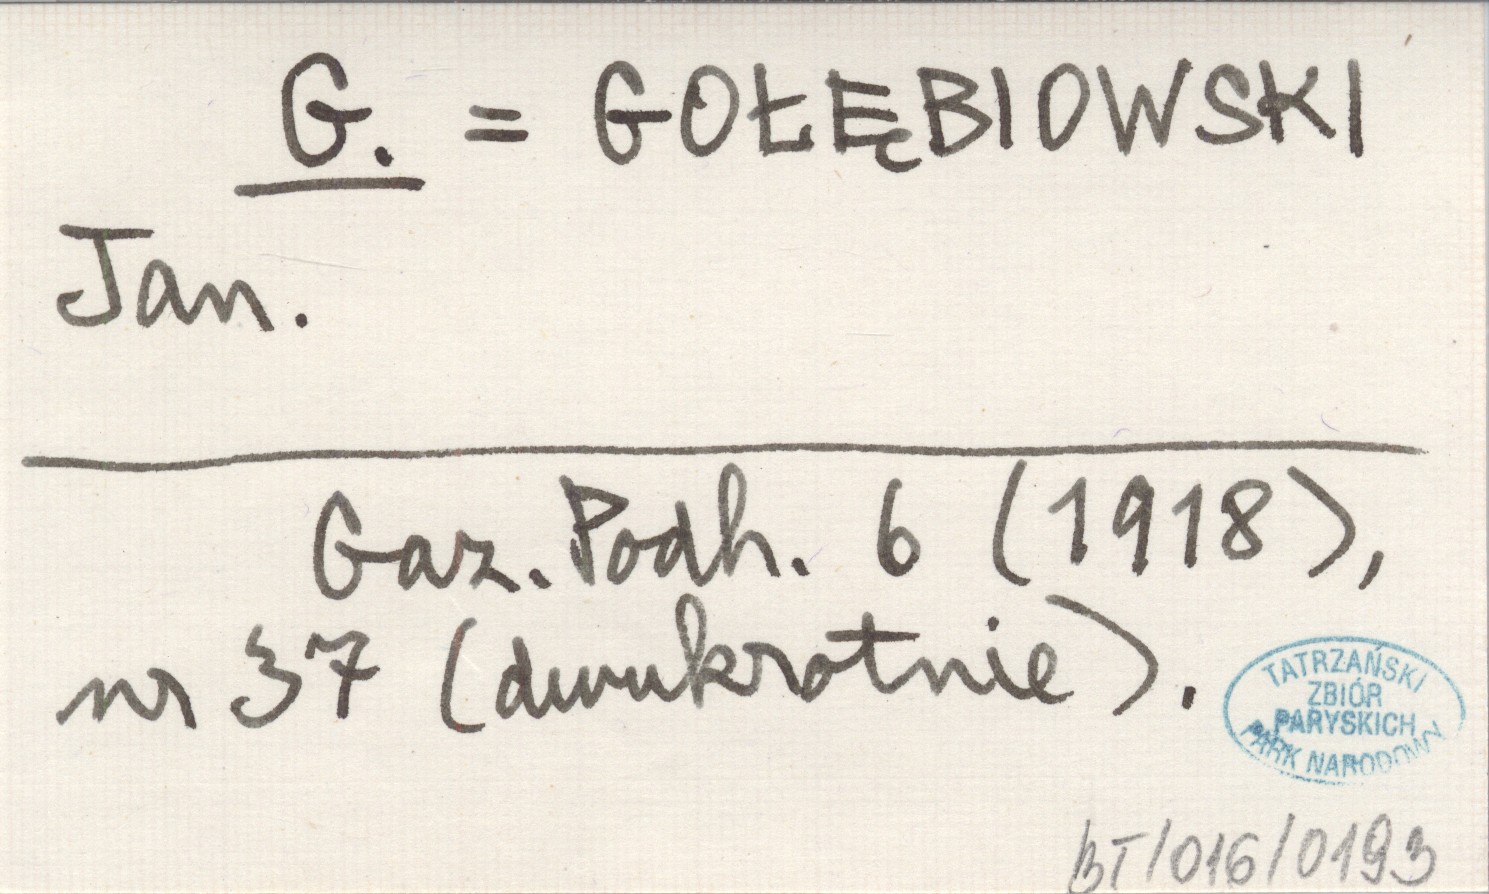 G. = GOŁĘBIOWSKI
Jan.
Gaz. Podh. 6 (1918),
nr 37 (dwukrotnie).
TATRZAŃSKI
ZBIÓR
PARYSKICH
PARK NARODOWY
BT/016/0193